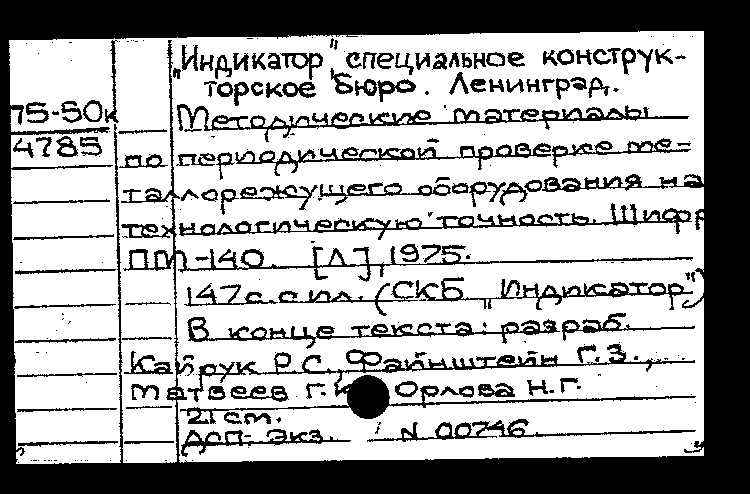 „Индикатор" специальное конструк-
торское бюро. Ленинград.
75-50к
4785
Методические материалы
по периодической проверке ме-
таллорежущего оборудования на
технологическую точность. Шифр
ПМ-140. [Л.], 1975.
147с. с ил. (СКБ „Индикатор")
В конце текста: разраб.
Кайрук Р.С., Файнштейн Г.З.,
Матвеев Г. Орлова Н.Г.
21 см.
ДСП. Экз. N 00746